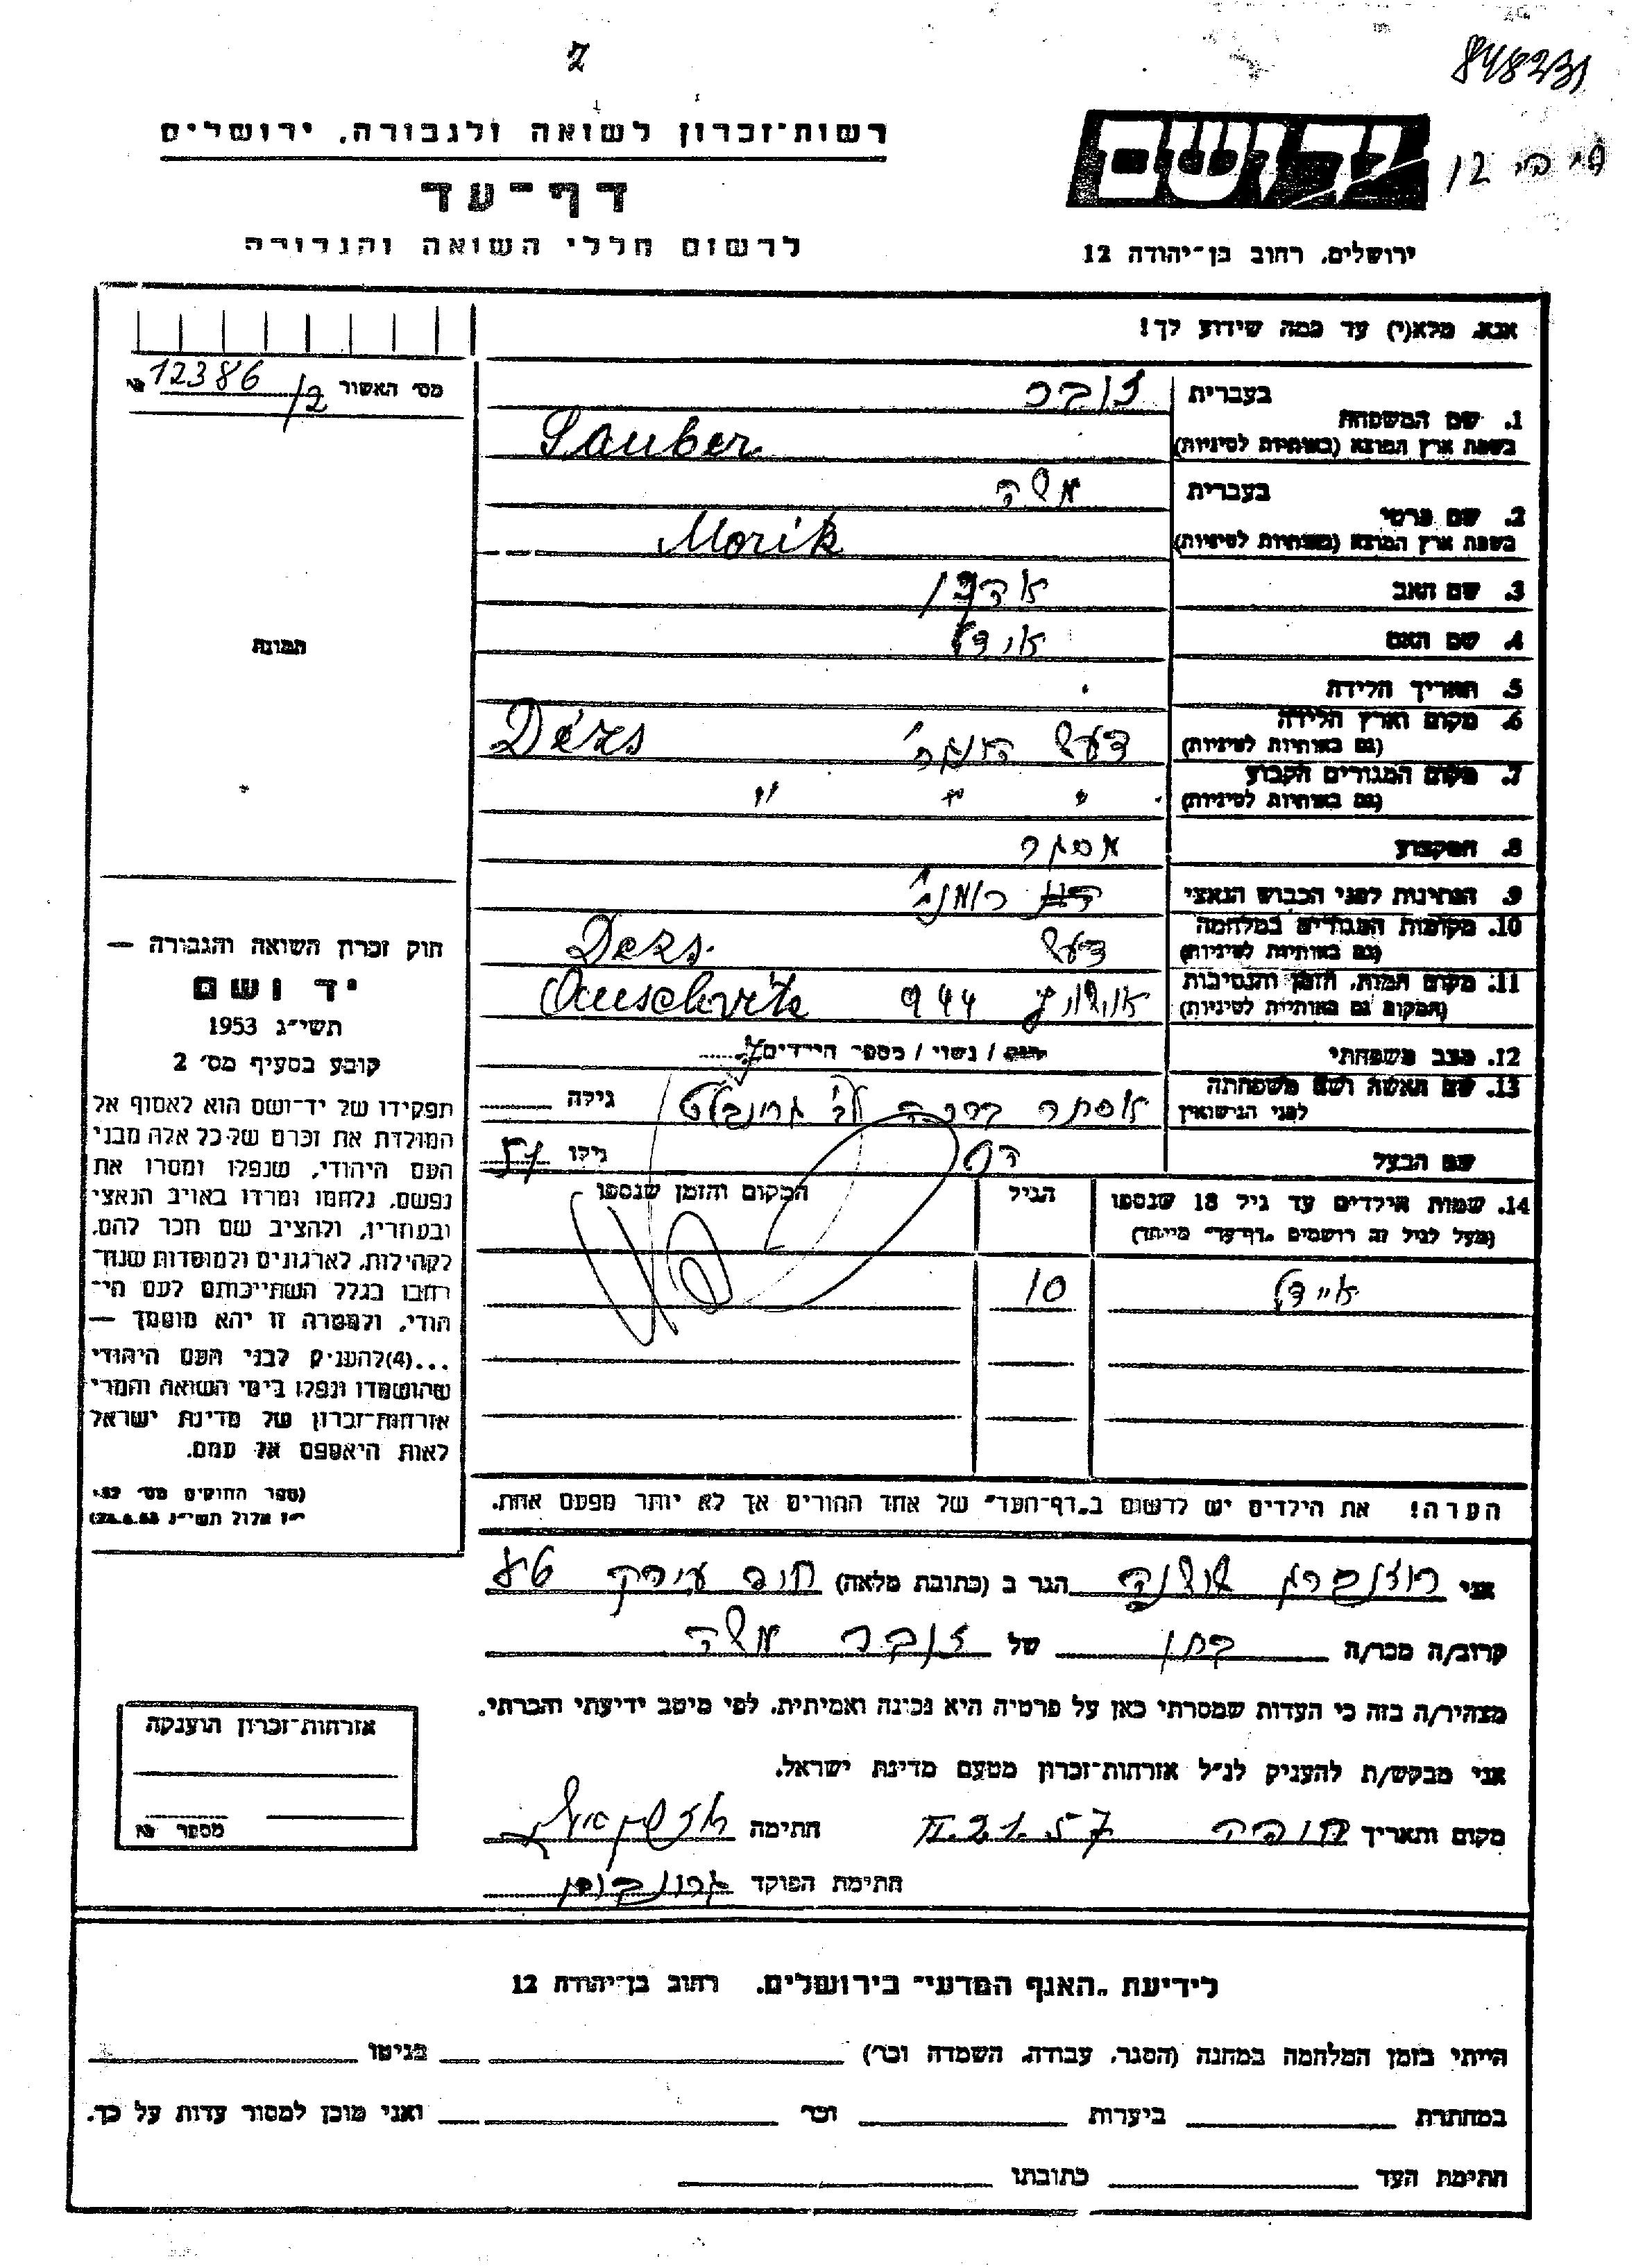 848231
רשות־זכרון לשואה ולגבורה, ירושלים
דף־עד
לרשום חללי השואה והגבורה
יד ושם
ירושלים, רחוב בן־יהודה 12
אנא, מלא(י) עד כמה שידוע לך!
מס׳ האשור 12386/2 №
1. שם המשפחה
בעברית זובר
בשפת ארץ המוצא (באותיות לטיניות) Sauber
2. שם פרטי
בעברית משה
בשפת ארץ המוצא (באותיות לטיניות) Morik
3. שם האב אהרן
4. שם האם אידל
5. תאריך הלידה
6. מקום וארץ הלידה
(גם באותיות לטיניות) Dézs
7. מקום המגורים הקבוע
(גם באותיות לטיניות) " " "
8. המקצוע מסגר
9. הנתינות לפני הכבוש הנאצי רומני׳
10. מקומות המגורים במלחמה
(גם באותיות לטיניות) Dezs.
11. מקום המות, הזמן והנסיבות
(המקום גם באותיות לטיניות) 944 Auschvitz
12. מצב משפחתי רווק / נשוי / מספר הילדים
13. שם האשה ושם משפחתה
לפני הנישואין אסתר לבי גרונבלט גילה
שם הבעל גילו 51
14. שמות הילדים עד גיל 18 שנספו
(מעל לגיל זה רושמים „דף־עד״ מיוחד)
הגיל
המקום והזמן שנספו
איידל 10
הערה! את הילדים יש לרשום ב„דף־העד״ של אחד ההורים אך לא יותר מפעם אחת.
תמונה
חוק זכרון השואה והגבורה —
יד ושם
תשי״ג 1953
קובע בסעיף מס׳ 2
תפקידו של יד־ושם הוא לאסוף אל
המולדת את זכרם של כל אלה מבני
העם היהודי, שנפלו ומסרו את
נפשם, נלחמו ומרדו באויב הנאצי
ובעוזריו, ולהציב שם וזכר להם,
לקהילות, לארגונים ולמוסדות שנח־
רבו בגלל השתייכותם לעם הי־
הודי, ולמטרה זו יהא מוסמך —
...(4) להעניק לבני העם היהודי
שהושמדו ונפלו בימי השואה והמרי
אזרחות־זכרון של מדינת ישראל
לאות היאספם אל עמם.
(ספר החוקים מס׳ 132,
י״ז אלול תשי״ג 28.8.53)
אני רוזנברג שושנה הגר ב (כתובת מלאה)
קרוב/ה מכר/ה של זובר משה
מצהיר/ה בזה כי העדות שמסרתי כאן על פרטיה היא נכונה ואמיתית, לפי מיטב ידיעתי והכרתי.
אני מבקש/ת להעניק לנ״ל אזרחות־זכרון מטעם מדינת ישראל.
מקום ותאריך II.21.57 חתימה
חתימת הפוקד
אזרחות־זכרון הוענקה
מספר №
לידיעת „האגף המדעי״ בירושלים, רחוב בן־יהודה 12
הייתי בזמן המלחמה במחנה (הסגר, עבודה, השמדה וכו׳) בגיטו
במחתרת ביערות וכו׳ ואני מוכן למסור עדות על כך.
חתימת העד כתובתו